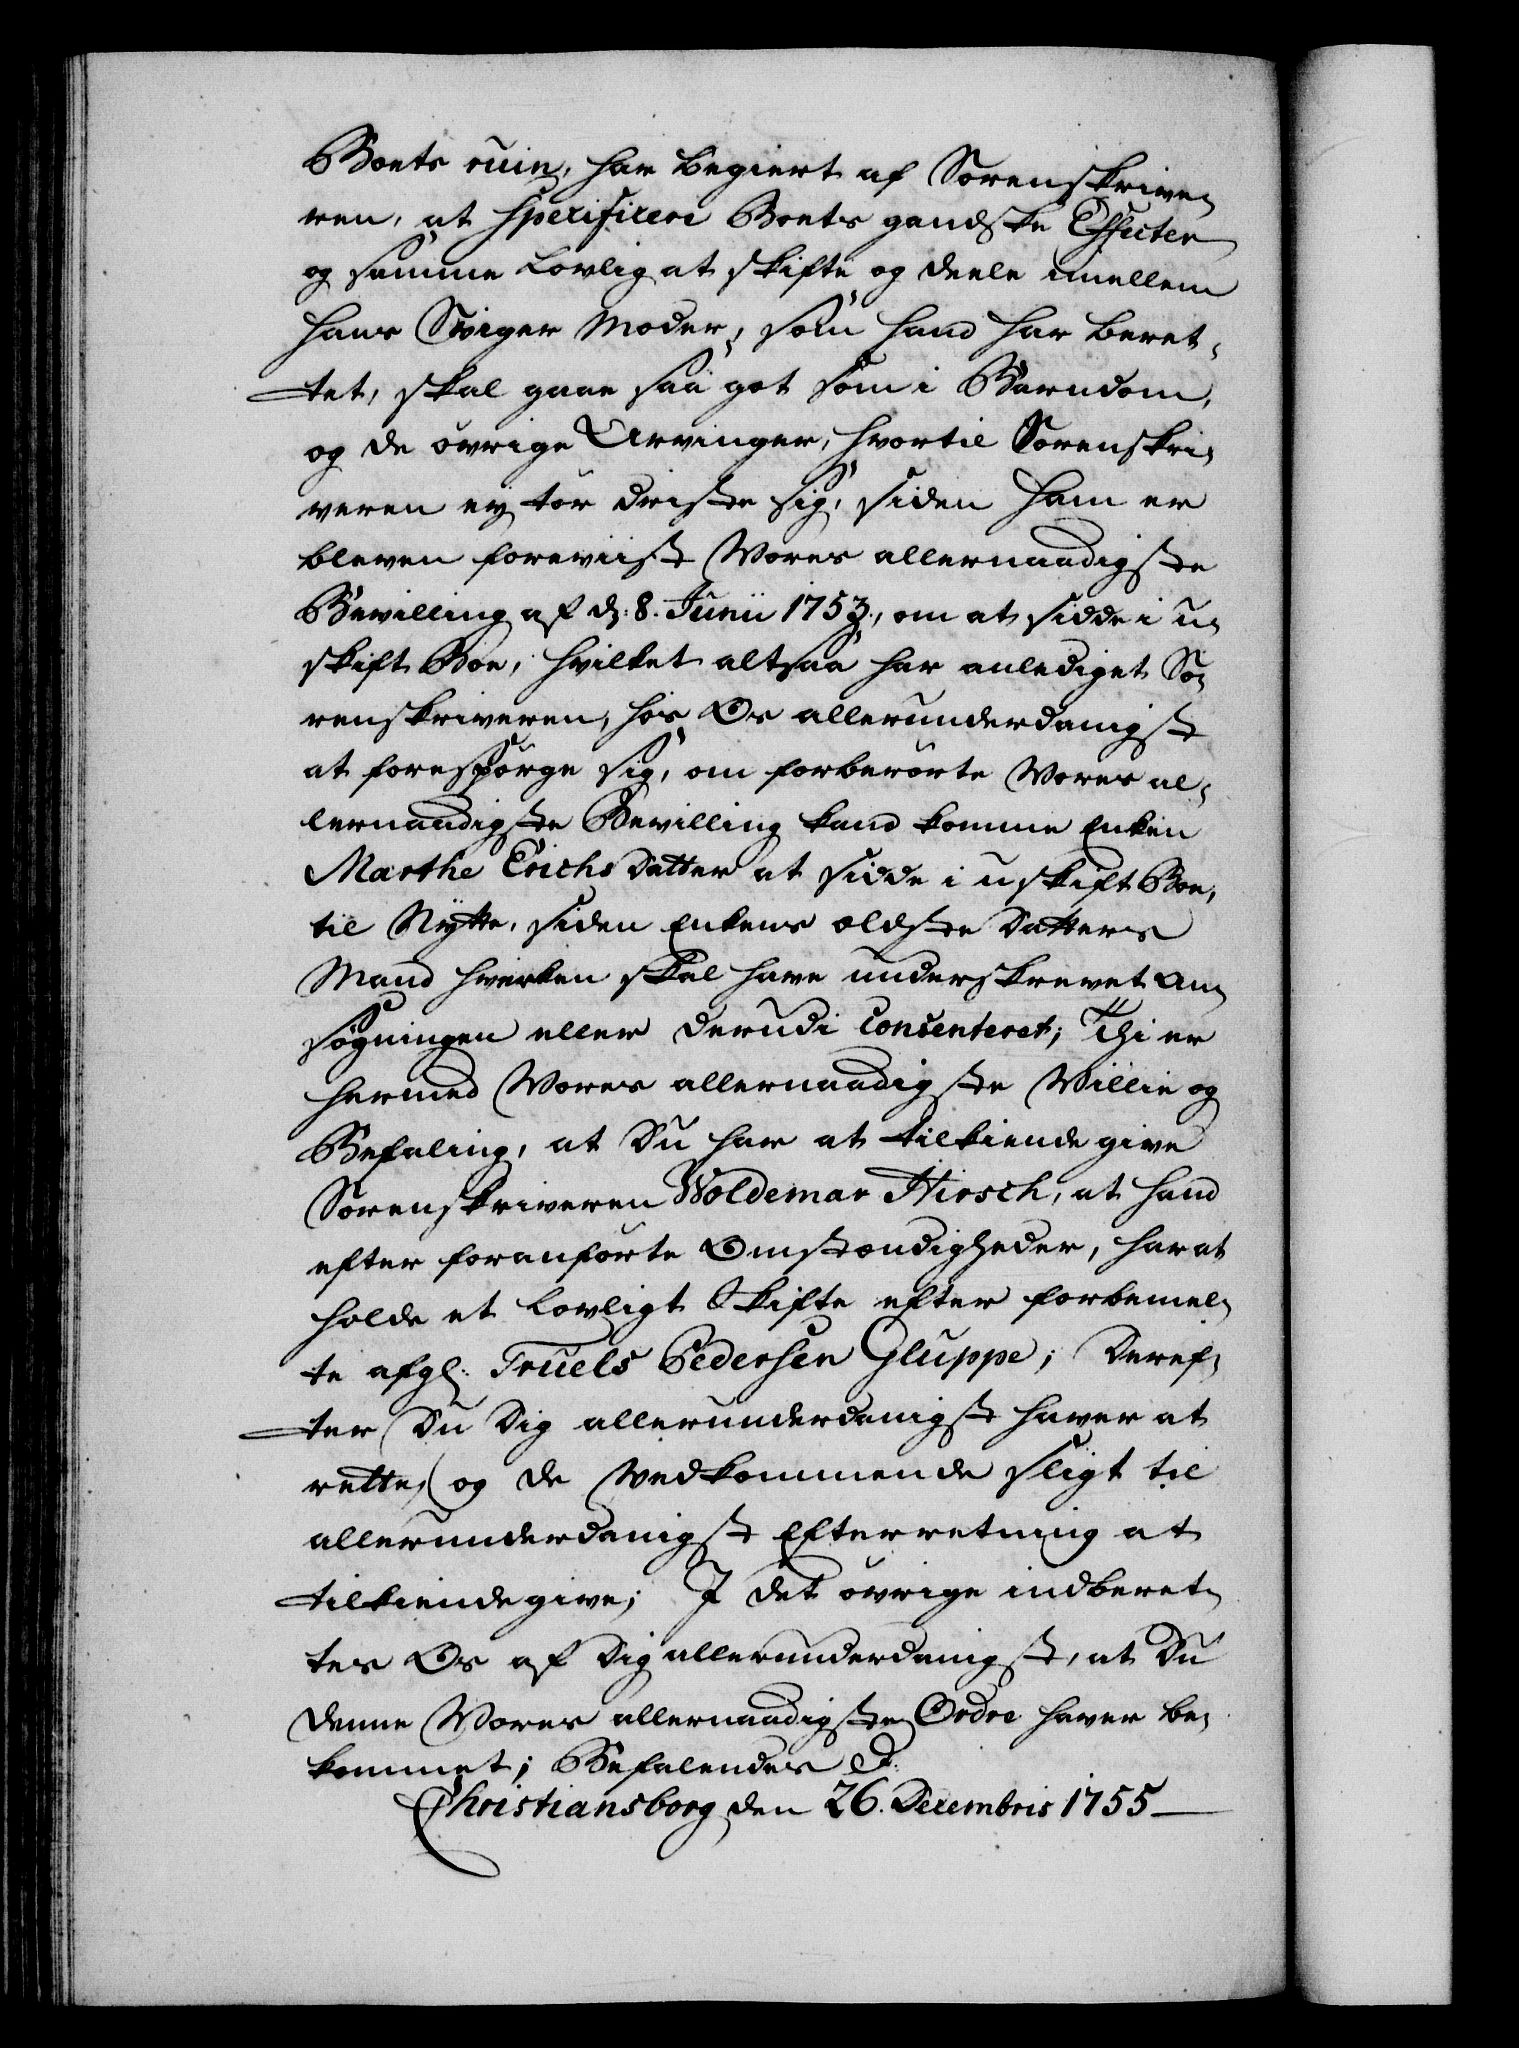 Boets ruin, har begiert af Sorenskrive,
ren, at specificere Boets gandske Effecter
og samme lovlig at skifte og deele imellem
hans Sviger Moder, som hand har beret,
tet, skal gaae saa got som i Barndom,
og de övrige Arvinger, hvortil Sorenskri,
veren ey tör driste sig, siden ham er
bleven foreviist Vores allernaadigste
Bevilling af d: 8. Junii 1753., om at sidde i u,
skift Boe, hvilket altsaa har anlediget So,
renskriveren, hos Os allerunderdanigst
at forespörge sig, om forberörte Vores al,
lernaadigste Bevilling kand komme Enken
Marthe Erichs Datter at sidde i uskift Boe,
til Nytte, siden Enkens ældste Datters
Mand hverken skal have underskrevet An,
sögningen eller derudi consenteret; Thi er
hermed Vores allernaadigste Villie og
Befaling, at Du har at tilkiende give
Sorenskriveren Woldemar Hirsch, at hand
efter foranförte Omstændigheder, har at
holde et lovligt Skifte efter forbemel,
te afgl: Truels Pedersen Gluppe; Deref,
ter Du Dig allerunderdanigst haver at
rette, og de Vedkommende sligt til
allerunderdanigst Efterretning at
tilkiendegive; I det övrige indberet,
tes Os af Dig allerunderdanigst, at Du
denne Vores allernaadigste Ordre haver be,
kommet; Befalendes &:
Christiansborg den 26. Decembris 1755